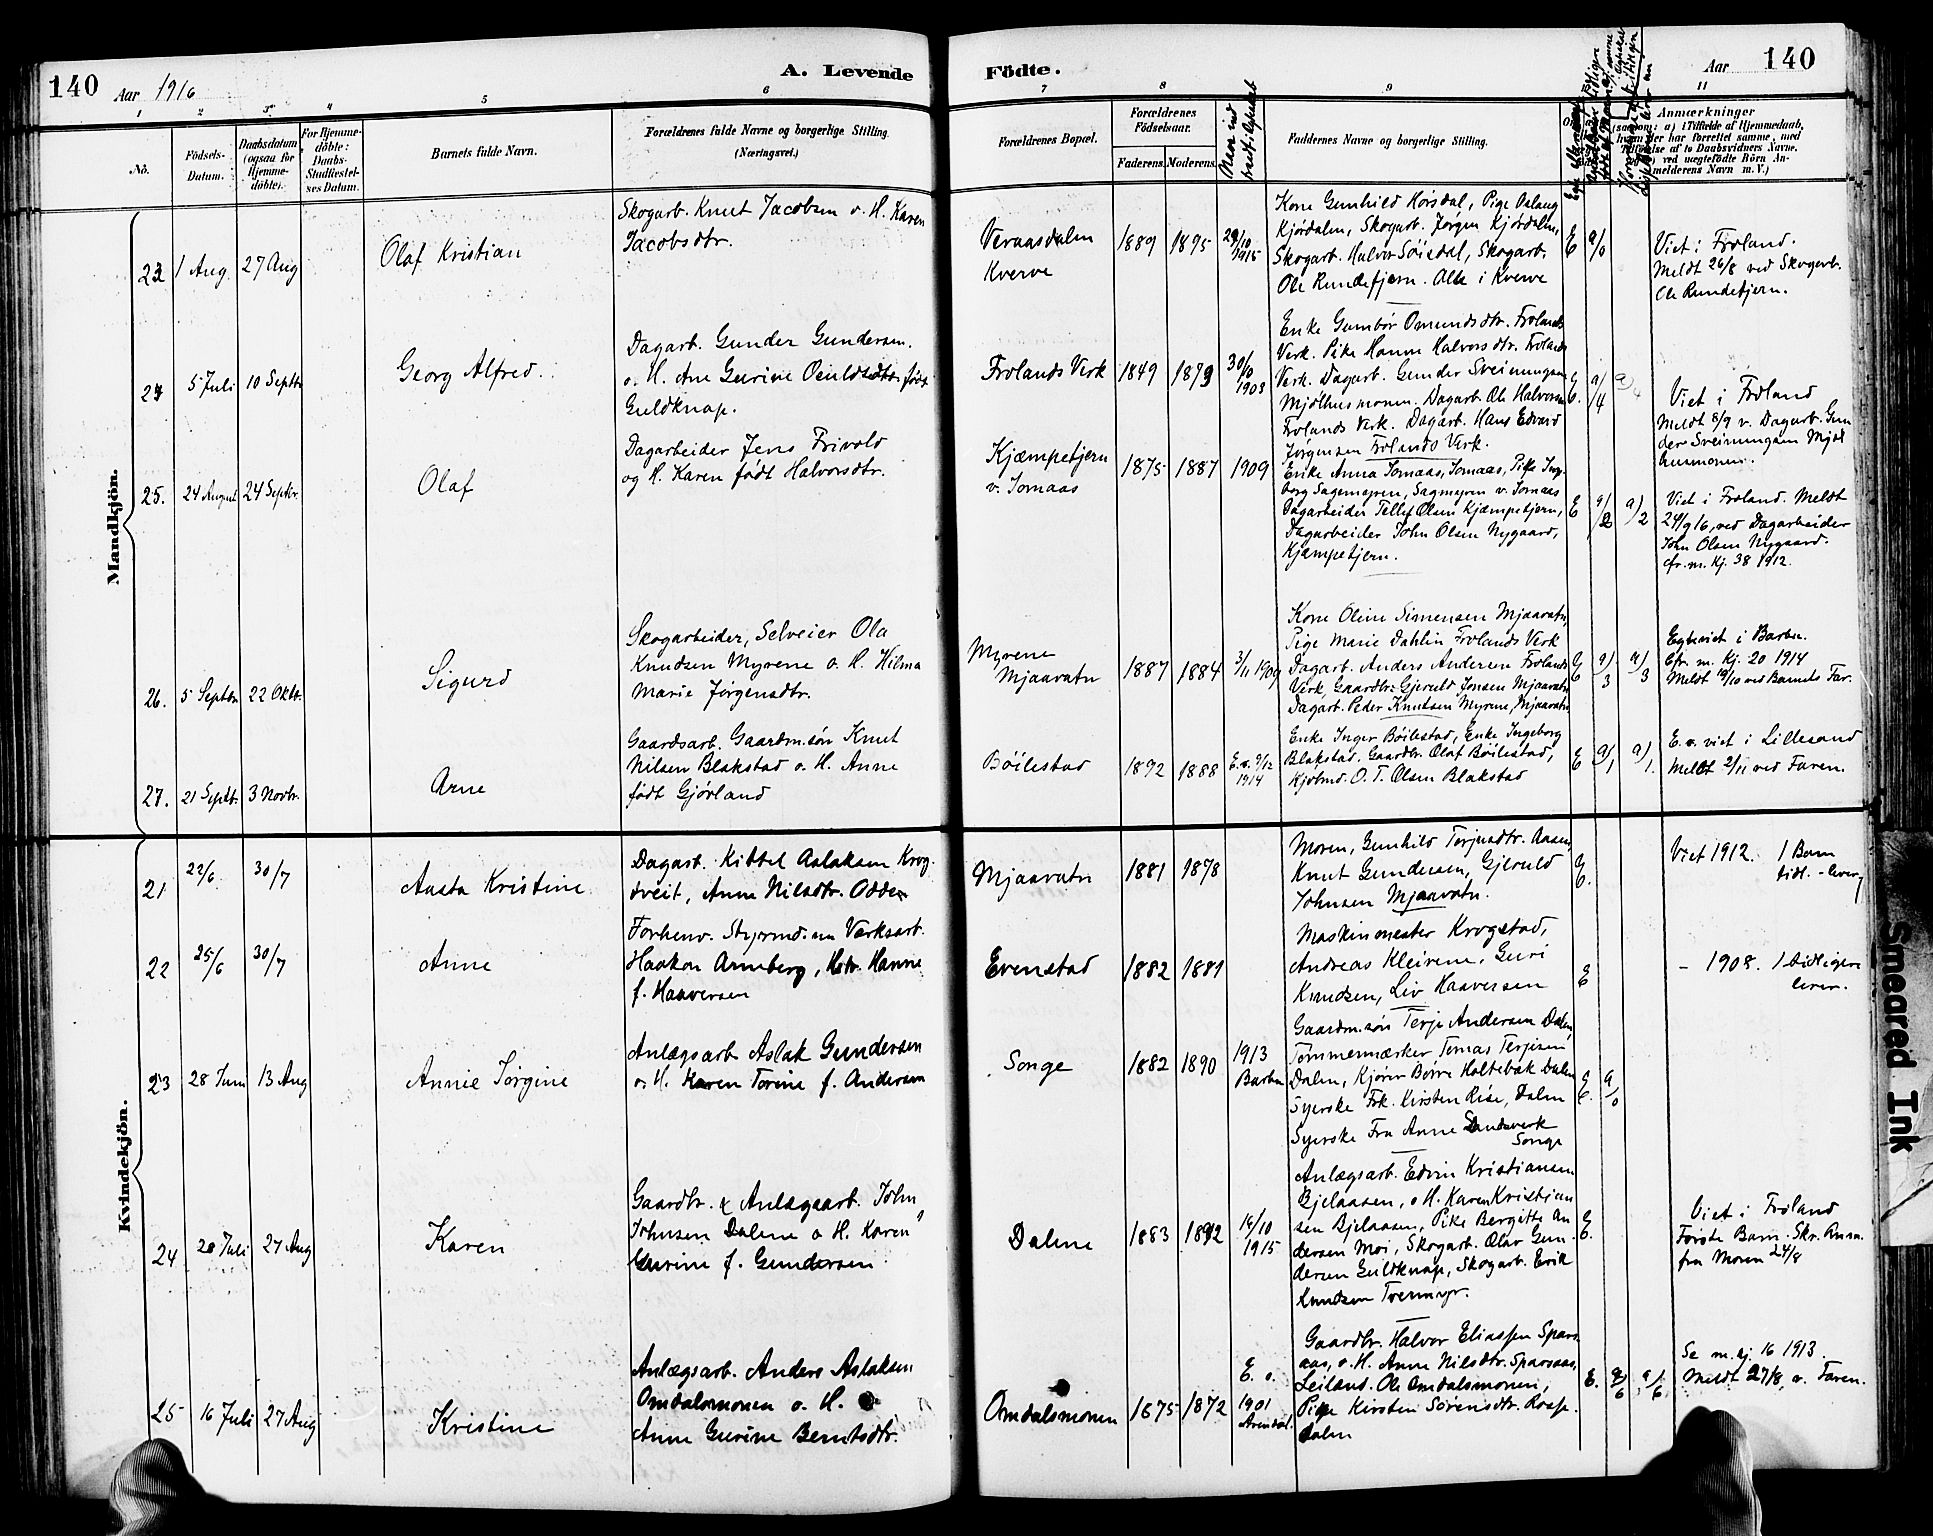 140
Aar 1916
A. Levende
Födte.
Aar
140
1
2
3
4
5
6
7
8
9
11
No.
Födsels-
Datum.
Daabsdatum
(ogsaa for
Hjemme-
döbte).
For Hjemme-
döbte:
Daabs-
Stadfæstel-
ses Datum.
Barnets fulde Navn.
Forældrenes fulde Navne og borgerlige Stilling.
(Næringsvei.)
Forældrenes Bopæl.
Forældrenes
Födselsaar.
Faderens.
Moderens.
Faddernes Navne og borgerlige Stilling.
Anmærkninger
(saasom: a) i Tilfælde af Hjemmedaab,
hvo der har forrettet samme, med
Tilföielse af to Daabsvidners Navne.
b) ved uægtefödte Börn An-
melderens Navn m. V.)
Mandkjön.
23
1 Aug.
27 Aug
Olaf Kristian
Skogarb. Knut Jacobsen o. H. Karen
Jacobsdtr.
Veraasdalen
Kverve
1889
1895
29/10
1915
Kone Gunhild Horsdal, Pige Aslaug
Kjórdalen, Skogarb. Jørgen Kjórdalen,
Skogarb. Halvor Sóisdal, Skogarb.
Ole Rundetjern. Alle i Kverve
E
a/0
Viet i Froland.
Meldt 26/8 ved Skogarb.
Ole Rundetjern.
24
5 Juli
10 Septbr
Georg Alfred.
Dagarb. Gunder Gundersen.
o. H. Ane Gurine Oeuldsdtr født
Guldknap.
Frolands Verk
1849
1873
30/10
1908
Enke Gunbór Omundsdtr. Frolands
Verk. Pike Hanne Halvorsdtr. Frolands
Verk. Dagarb. Gunder Sveinungsen
Mjølhusmonen. Dagarb. Ole Halvorsen
Frolands Verk. Dagarb. Hans Edvard
Jørgensen Frolands Verk.
E.
a/4
a/4
Viet i Froland
Meldt 8/9 v. Dagarb. Gun
der Sveinungsen Mjøl
husmonen.
25.
24 August
24 Septbr.
Olaf
Dagarbeider Jens Frivold
og H. Karen født Halvorsdtr.
Kjæmpetjern
v. Jomaas
1875
1887
1909
Enke Anna Jomaas, Jomaas, Pike Inge
borg Sagemyren, Sagmyren v. Jomaas
Dagarbeider Tellef Olsen Kjæmpetjern,
Dagarbeider John Olsen Nygaard,
Kjæmpetjern.
E
a/2
a/2
Viet i Froland. Meldt
24/9 16, ved Dagarbeider
John Olsen Nygaard.
cfr. m. Kj. 38 1912.
26.
5 Septbr
22 Oktr.
Sigurd
Skogarbeider, Selveier Ola
Knudsen Myrene o. H. Hilma
Marie Jørgensdtr.
Myrene
Mjaavatn
1887
1884
3/11 1909
Kone Oline Simensen Mjaavatn
Pige Marie Dahlin Frolands Verk
Dagarb. Anders Andersen Frolands
Verk Gaardbr. Gjeruld Jonsen Mjaavatn
Dagarb. Peder Knutsen Myrene, Mjaavatn
E
a/3
a/3
Egteviet i Barbu.
Cfr. m. Kj. 20 1914
Meldt 19/10 ved Barnets Far.
27.
21 Septbr.
3 Novbr.
Arne
Gaardsarb. Gaardm.søn Knut
Nilsen Blakstad o. H. Anne
født Gjórland
Bóilestad
1892
1888
E.v. 9/12
1914
Enke Inger Bóilestad, Enke Ingeborg
Blakstad. Gaardbr. Olaf Bóilestad,
Kjøbmd. O. T. Olsen Blakstad
E
a/1
a/1.
E. v. viet i Lillesand
Meldt 2/11 ved Faren.
Kvindekjön.
21
22/6
30/7
Aasta Kristine
Dagarb. Kittel Aslaksen Krog
tveit, Anne Nilsdtr. Odden
Mjaavatn
1881
1878
Moren, Gunhild Terjesdtr. Aasen,
Knut Gundersen, Gjeruld
Johnsen Mjaavatn.
E.
Viet 1912. 1 Barn
tidl. - lever
22
25/6
30/7
Anne
Forhenv. Styrmd. nu Verksarb.
Haakon Arneberg, Hstr. Hanne
f. Haaversen
Evenstad
1882
1881
Maskinmester Krogstad,
Andreas Kleivene, Guri
Knudsen, Liv Haaversen
E
- 1908. 1 tidligere
lever.
23
28 Juni
13 Aug
Annie Jørgine
Anlægsarb Aslak Gundersen
o. H. Karen Torine f. Andersen
Songe
1882
1890
1913
Barbu
Gaardm.søn Terje Andersen Dalen,
Tømmermærker Tomas Terjesen
Dalen, Kjører Børre Holtebak Dalen
Syerske Frk. Kirsten Rise, Dalen
Syerske Fru Anne Sandsverk
Songe
E.
a/0
24
28 Juli
27 Aug
Karen
Gaardbr. & Anlægsarb. John
Johnsen Dalene o H. Karen
Gurine f. Gundersen.
Dalene
1883
1892
14/10
1915
Anlægsarb. Edvin Kristiansen
Bjelaasen, o H. Karen Kristian
sen Bjelaasen, Pike Bergitte An
dersen Moi, Skogarb. Olav Gun
dersen Guldknap, Skogarb. Erik
Knudsen Trevmyr.
E.
Viet i Froland
Første Barn. Skr. Anm.
fra Moren 24/8
25
16 Juli
27 Aug
Kristine
Anlægsarb. Anders Aslaksen
Omdalsmonen o. H.
Anne Gurine Berntsdtr.
Omdalsmonen
1875
1872
E. v.
1901
Arendal.
Gaardbr. Halvor Eliassen Spars
aas, o. H. Anne Nilsdtr. Sparsaas,
Leilænd. Ole Omdalsmonen,
Pige Kirsten Sørensdtr. Rosse
dalen
E.
a/6
a/6
Se m. kj 16 1913.
Meldt 27/8, v. Faren.
Smeared Ink